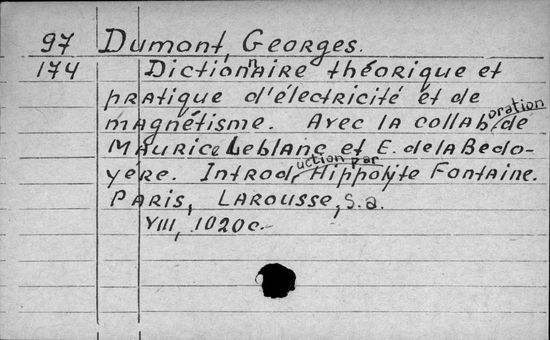 97 Dumont, Georges.
174 Dictionnaire théorique et
pratique d'électricité et de
magnétisme. Avec la collaboration de
Maurice Leblanc et E. de la Bedo-
yère. Introduction par Hippolyte Fontaine.
Paris, Larousse, s.a.
VIII, 1020 c.